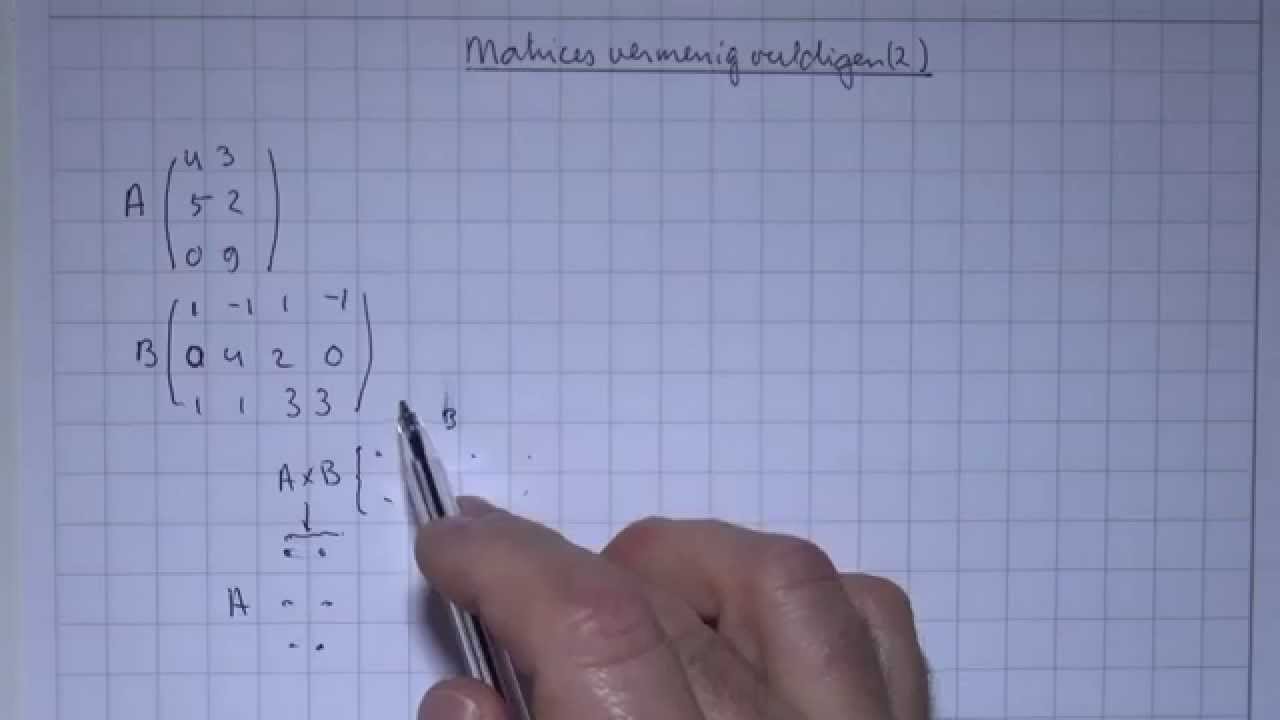 Matrices vermenigvuldigen (2)
A
4 3
5 2
0 9
B
1 -1 1 -1
0 4 2 0
1 1 3 3
B
A x B
A